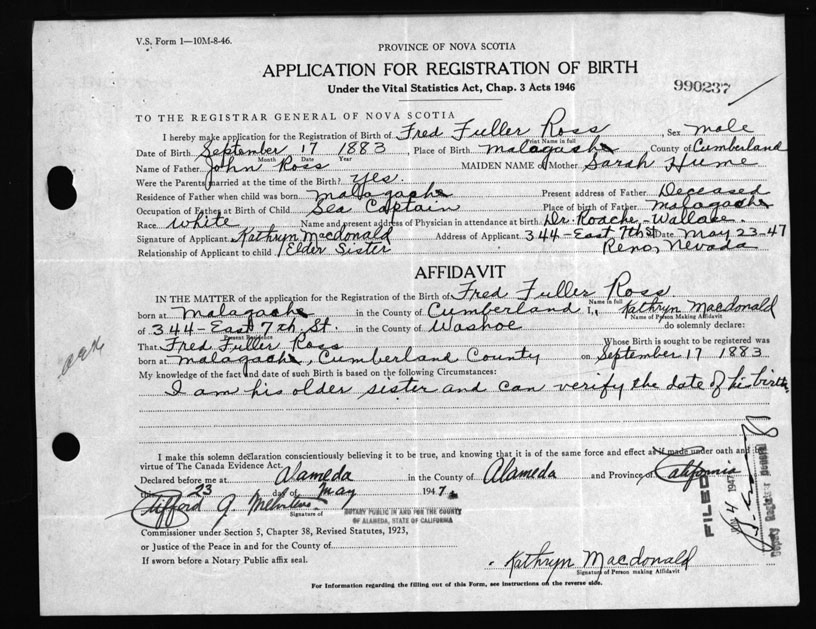 V.S. Form 1—10M-8-46.
PROVINCE OF NOVA SCOTIA
APPLICATION FOR REGISTRATION OF BIRTH
Under the Vital Statistics Act, Chap. 3 Acts 1946
990237
TO THE REGISTRAR GENERAL OF NOVA SCOTIA
I hereby make application for the Registration of Birth of Fred Fuller Ross, Sex male
Print Name in full
Date of Birth September 17 1883, Place of Birth malagash County of Cumberland
Month Date Year
Name of Father John Ross MAIDEN NAME of Mother Sarah Hume
Were the Parents married at the time of the Birth? yes.
Residence of Father when child was born malagash Present address of Father Deceased
Occupation of Father at Birth of Child Sea Captain Place of birth of Father malagash
Race white Name and present address of Physician in attendance at birth Dr. Roache, - Wallace.
Signature of Applicant Kathryn Macdonald Address of Applicant 344-East 7th St Date May 23-47
Relationship of Applicant to child Elder Sister Reno, Nevada
AFFIDAVIT
IN THE MATTER of the application for the Registration of the Birth of Fred Fuller Ross
Name in full
born at Malagash in the County of Cumberland I, Kathryn Macdonald
Name of Person Making Affidavit
of 344-East 7th St. in the County of Washoe do solemnly declare:
Present Residence
That Fred Fuller Ross Whose Birth is sought to be registered was
born at malagash, Cumberland County on September 17 1883
My knowledge of the fact and date of such Birth is based on the following Circumstances:
I am his older sister and can verify the date of his birth.
I make this solemn declaration conscientiously believing it to be true, and knowing that it is of the same force and effect as if made under oath and by
virtue of The Canada Evidence Act.
Declared before me at Alameda in the County of Alameda and Province of California
this 23 day of May 1947
Clifford G.
Signature of
NOTARY PUBLIC IN AND FOR THE COUNTY
OF ALAMEDA, STATE OF CALIFORNIA
Commissioner under Section 5, Chapter 38, Revised Statutes, 1923,
or Justice of the Peace in and for the County of
If sworn before a Notary Public affix seal.
Kathryn Macdonald
Signature of Person making Affidavit
For Information regarding the filling out of this Form, see instructions on the reverse side.
FILED
4 1947
Deputy Registrar General